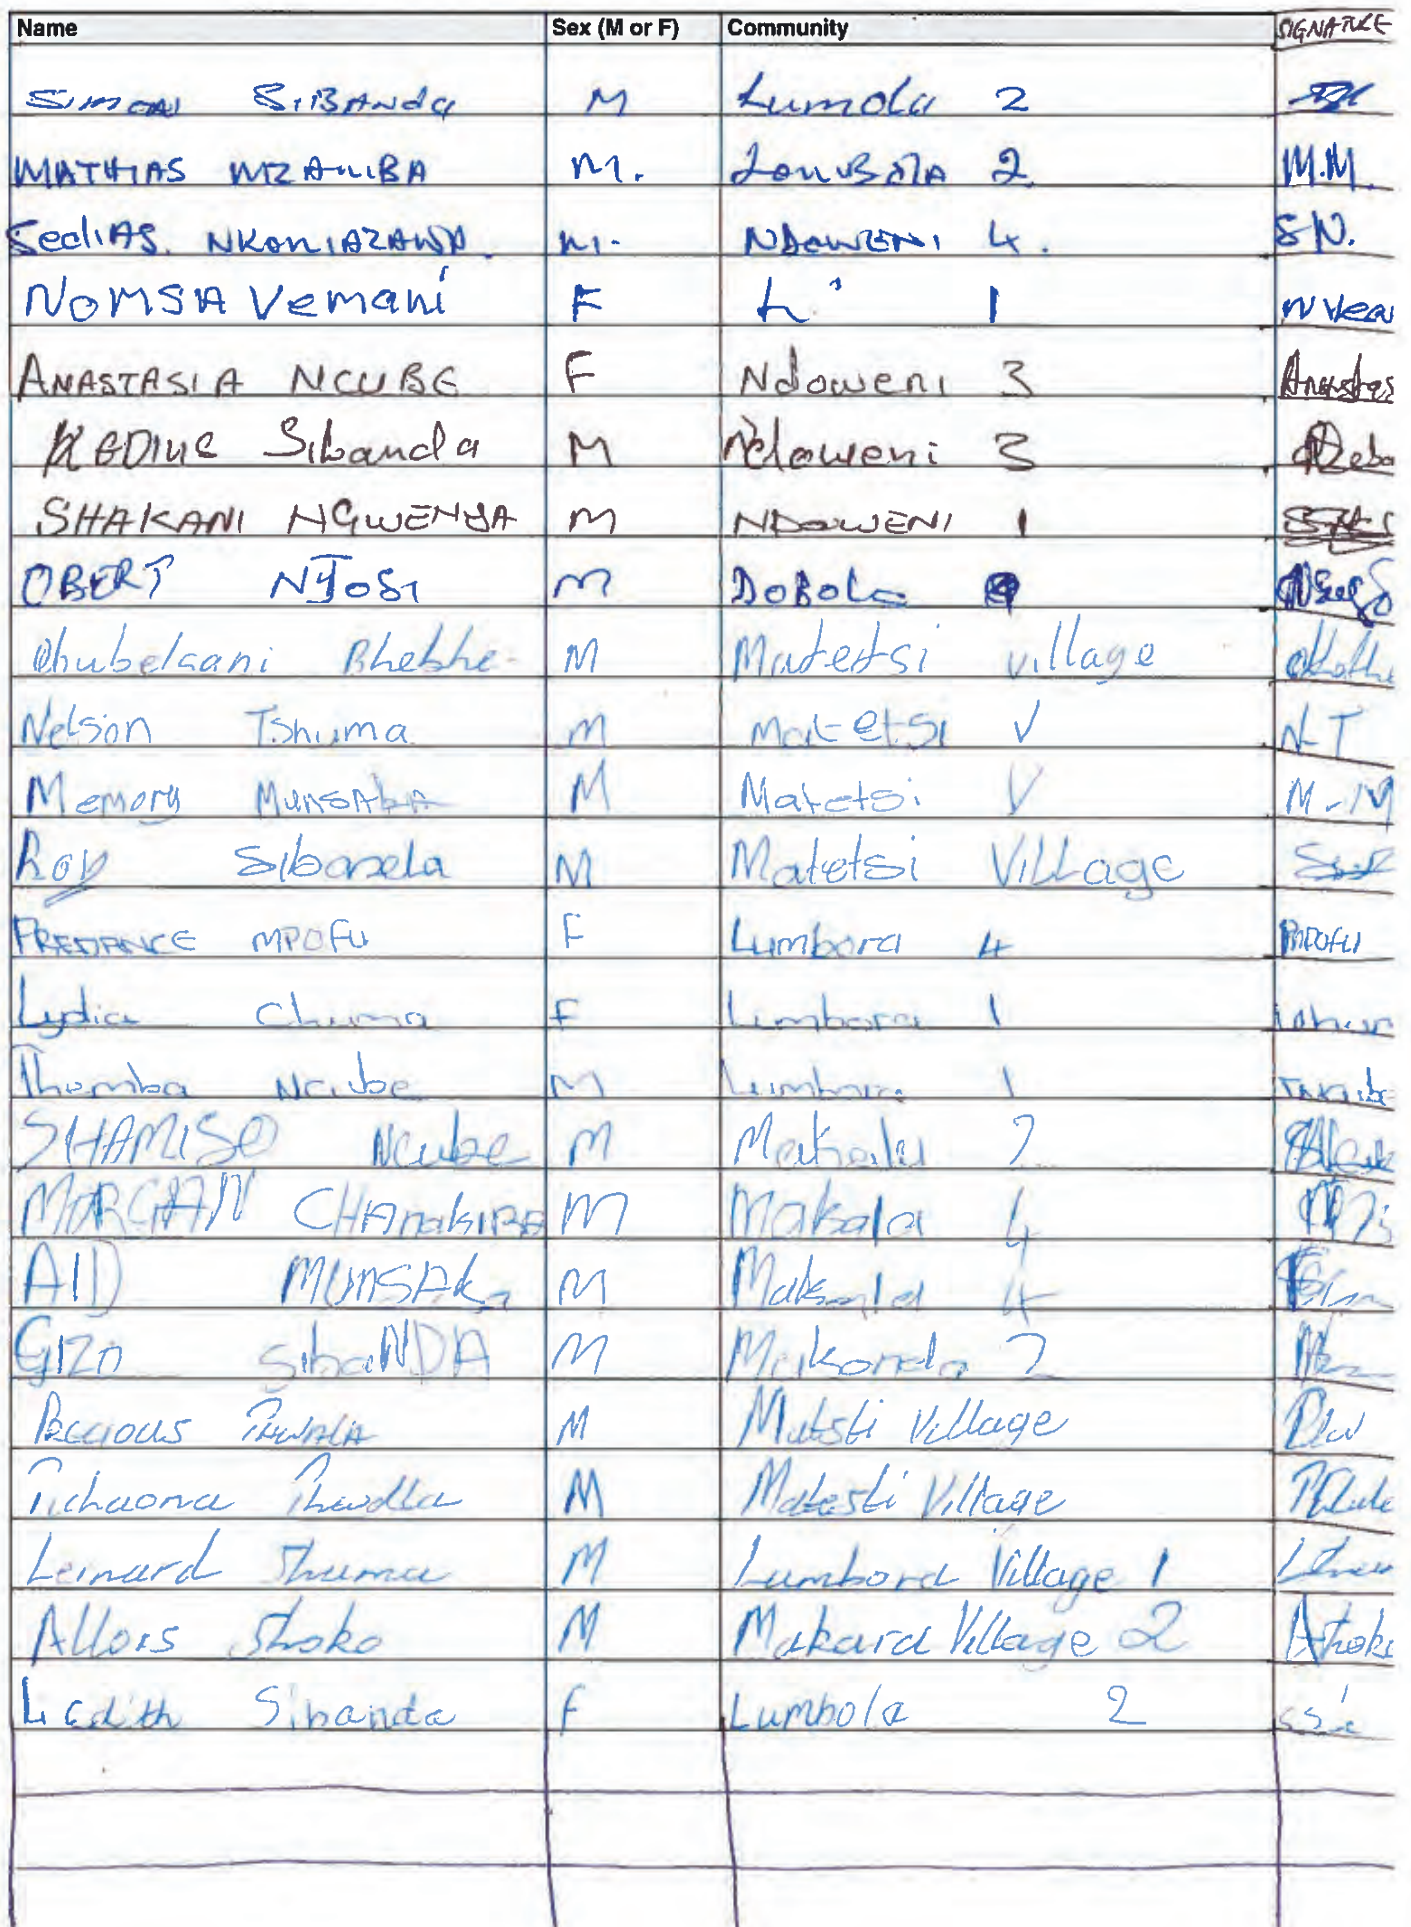 Name Sex (M or F) Community SIGNATURE
SIMON SIBANDA M Lumola 2
MATHIAS MZAMBA M. 2 M.M.
SedIAS. M. NDOWENI 4. S N.
NOMSA Vemani F L " 1
ANASTASIA NCUBE F Ndoweni 3
Sibanda M Ndoweni 3
SHAKANI NGWENYA M NDOWENI 1
OBERT NJOSI M DOBOLA
Bhebhe M Matetsi village
Nelson Tshuma M Matetsi V N-T
Memory MUNSAKA M Matetsi V M-M
Roy Sibanda M Matetsi Village
MPOFU F Lumbora 4 MPOFU
Lydia Chuma F Lumbora 1
Thomba Ncube M Lumbora 1 TNcube
SHAMISO Ncube M Makala 2
MORGAN M Makala 4
AID MUNSAKA M Makala 4
GIZO SibaNDA M 2
PRECIOUS M Matsti Village
Tichaona M Matesti Village
Leinard Thuma M Lumbora Village 1
Allois Shoko M Makara Village 2
Sibanda F Lumbola 2